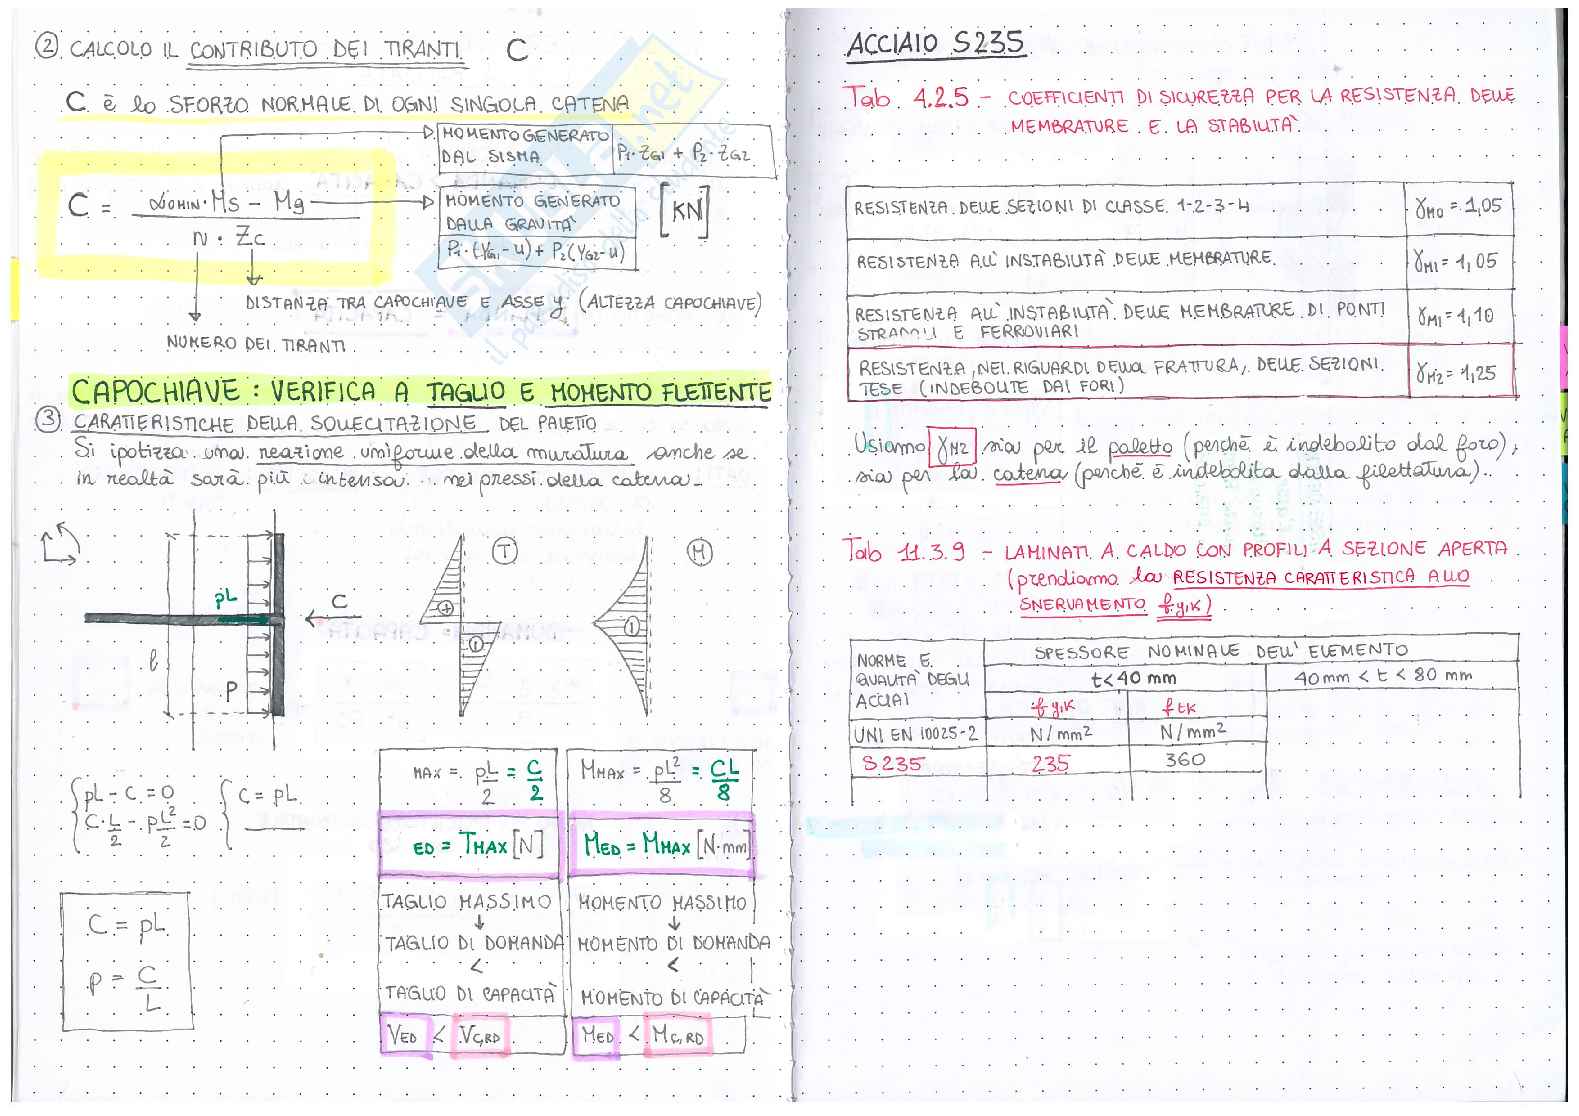 ② CALCOLO IL CONTRIBUTO DEI TIRANTI C
C è lo SFORZO NORMALE DI OGNI SINGOLA CATENA
C = αDOMIN · Ms - Mg / N · Zc
MOMENTO GENERATO
DAL SISMA
P1·ZG1 + P2·ZG2
MOMENTO GENERATO
DALLA GRAVITÀ
P1·(YG1-u) + P2(YG2-u)
[KN]
DISTANZA TRA CAPOCHIAVE E ASSE y (ALTEZZA CAPOCHIAVE)
NUMERO DEI TIRANTI
CAPOCHIAVE : VERIFICA A TAGLIO E MOMENTO FLETTENTE
③ CARATTERISTICHE DELLA SOLLECITAZIONE DEL PALETTO
Si ipotizza una reazione uniforme della muratura anche se
in realtà sarà più intensa nei pressi della catena
pL
C
l
P
T
M
pL - C = 0
C·L/2 - pL²/2 = 0
C = pL
C = pL
P = C/L
MAX = pL/2 = C/2
ED = TMAX [N]
TAGLIO MASSIMO
↓
TAGLIO DI DOMANDA
<
TAGLIO DI CAPACITÀ
VED < VC,RD
MMAX = pL²/8 = CL/8
MED = MMAX [N·mm]
MOMENTO MASSIMO
↓
MOMENTO DI DOMANDA
<
MOMENTO DI CAPACITÀ
MED < MC,RD
ACCIAIO S235
Tab 4.2.5 - COEFFICIENTI DI SICUREZZA PER LA RESISTENZA DELLE
MEMBRATURE E LA STABILITÀ
RESISTENZA DELLE SEZIONI DI CLASSE 1-2-3-4 γM0 = 1,05
RESISTENZA ALL'INSTABILITÀ DELLE MEMBRATURE γM1 = 1,05
RESISTENZA ALL'INSTABILITÀ DELLE MEMBRATURE DI PONTI
STRADALI E FERROVIARI γM1 = 1,10
RESISTENZA, NEI RIGUARDI DELLA FRATTURA, DELLE SEZIONI
TESE (INDEBOLITE DAI FORI) γM2 = 1,25
Usiamo γM2 sia per il paletto (perché è indebolito dal foro),
sia per la catena (perché è indebolita dalla filettatura)
Tab 11.3.9 - LAMINATI A CALDO CON PROFILI A SEZIONE APERTA
(prendiamo la RESISTENZA CARATTERISTICA ALLO
SNERVAMENTO fy,k)
NORME E
QUALITÀ DEGLI
ACCIAI
SPESSORE NOMINALE DELL'ELEMENTO
t<40 mm 40mm < t < 80 mm
fy,k ftk
UNI EN 10025-2 N/mm² N/mm²
S235 235 360